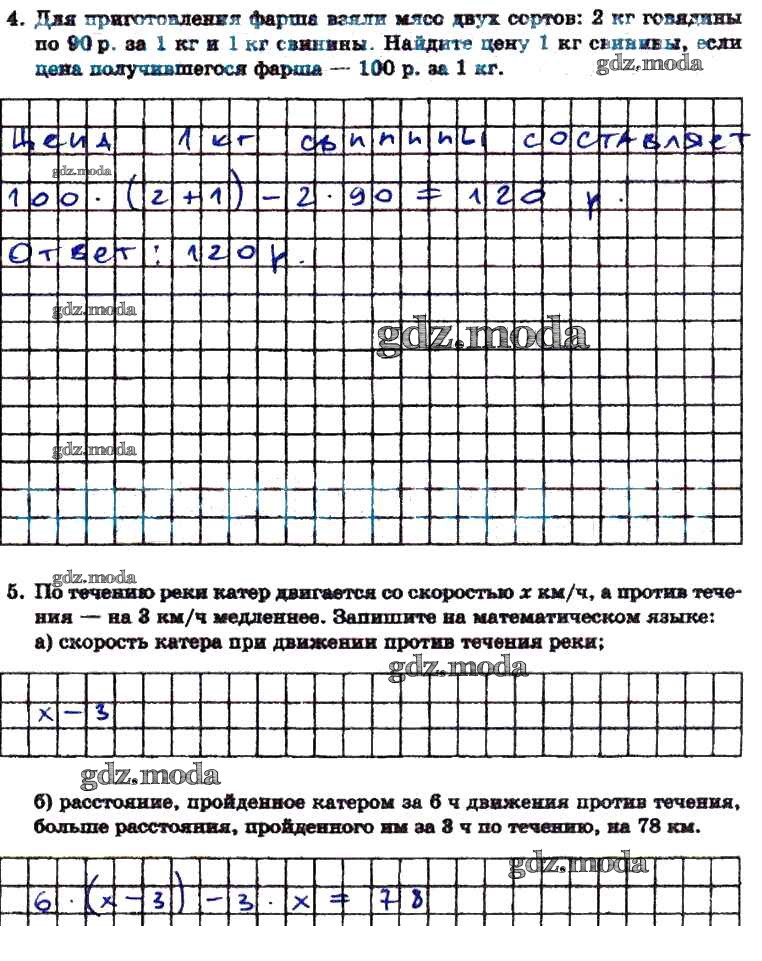 4. Для приготовления фарша взяли мясо двух сортов: 2 кг говядины
по 90 р. за 1 кг и 1 кг свинины. Найдите цену 1 кг свинины, если
цена получившегося фарша — 100 р. за 1 кг.
gdz.moda
Цена 1 кг свинины составляет
gdz.moda
100 · (2 + 1) - 2 · 90 = 120 р.
Ответ: 120 р.
gdz.moda
gdz.moda
gdz.moda
gdz.moda
5. По течению реки катер двигается со скоростью x км/ч, а против тече-
ния — на 3 км/ч медленнее. Запишите на математическом языке:
а) скорость катера при движении против течения реки;
gdz.moda
x - 3
gdz.moda
б) расстояние, пройденное катером за 6 ч движения против течения,
больше расстояния, пройденного им за 3 ч по течению, на 78 км.
gdz.moda
6 · (x - 3) - 3 · x = 78